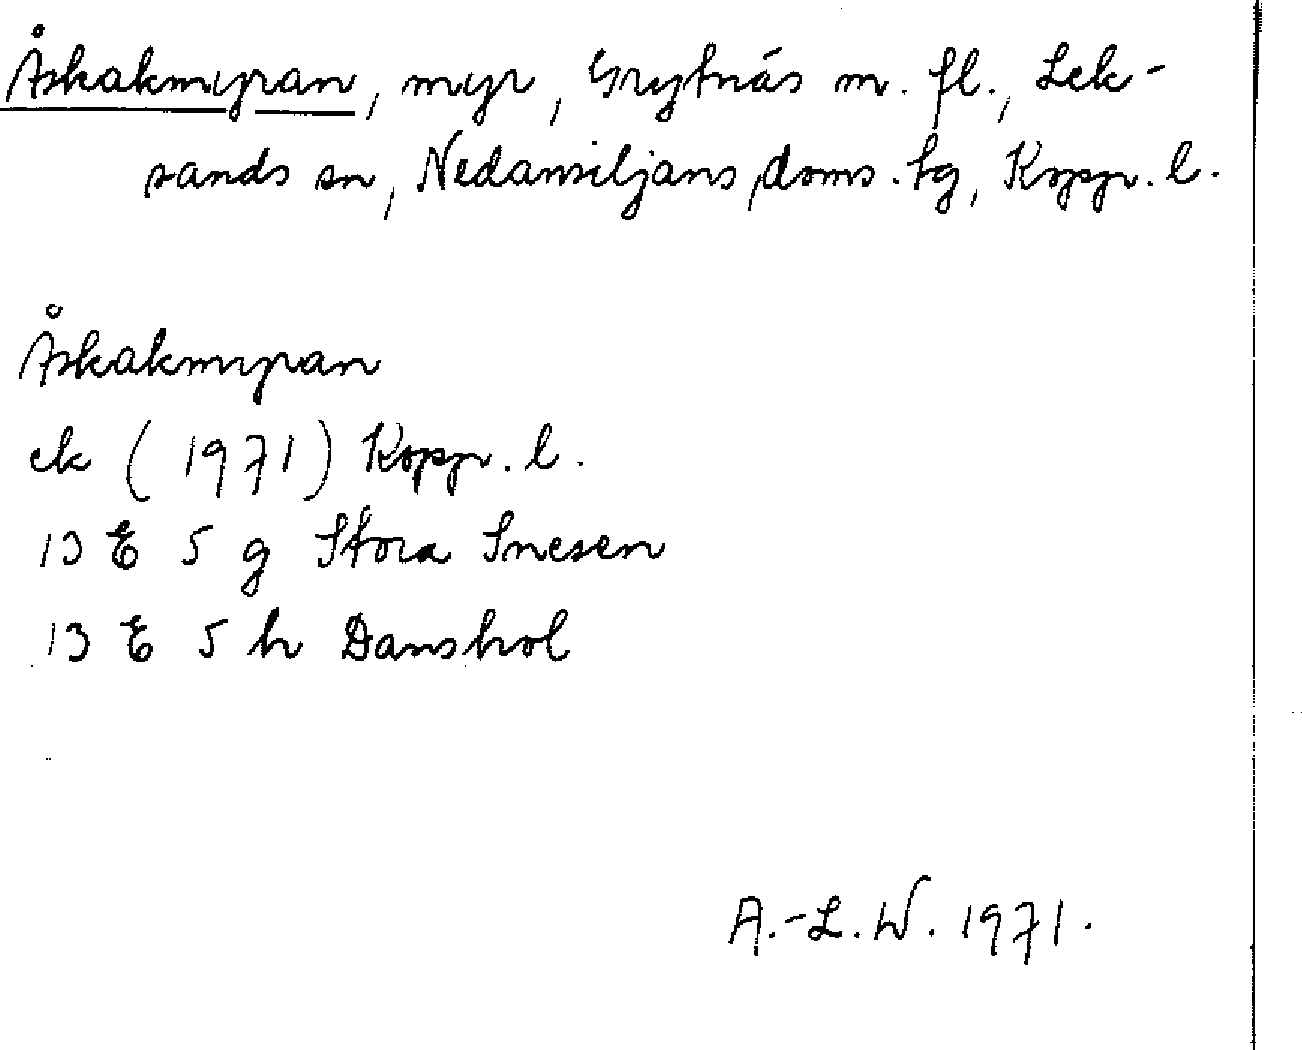 Åskakmyran, myr, Grytnäs m. fl., Lek-
sands sn, Nedansiljans doms. tg, Kopp. l.
Åskakmyran
ek (1971) Kopp. l.
13 E 5 g Stora Snesen
13 E 5 h Danshol
A.-L. W. 1971.